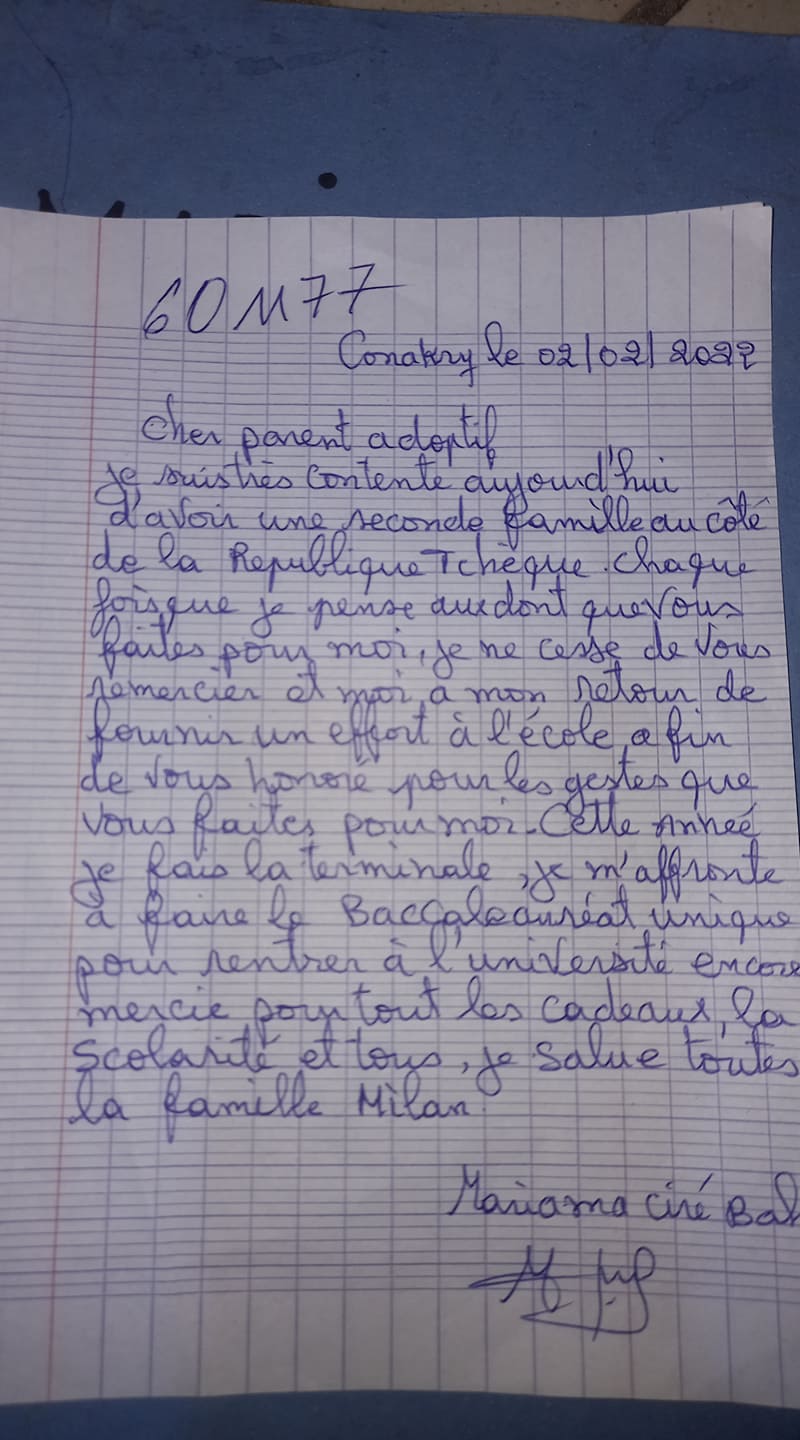 60M77
Conakry le 02/02/2022
Cher parent adoptif
je suis très contente aujourd'hui
d'avoir une seconde famille au côté
de la Republique Tchèque. Chaque
fois que je pense aux dont que vous
faites pour moi, je ne cesse de vous
remercier et moi a mon retour de
fournir un effort à l'école a fin
de vous honore pour les gestes que
vous faites pour moi. Cette Anneé
je fais la terminale, je m'affronte
à faire le Baccaleauréat unique
pour rentrer à l'université encore
mercie pour tout les cadeaux, la
Scolarité et tous, je salue toutes
la famille Milan.
Mariama Ciré